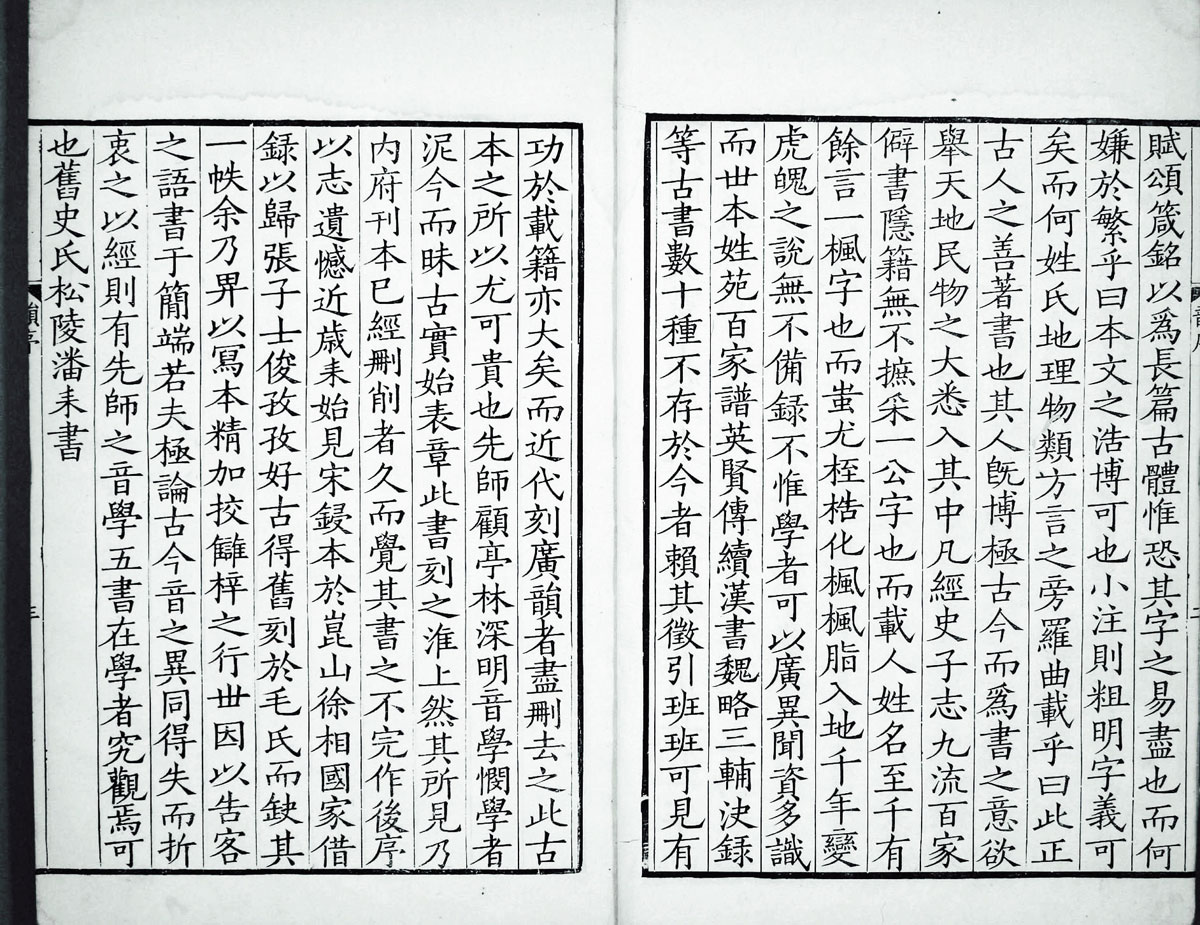 賦頌箴銘以爲長篇古體惟恐其字之易盡也而何
嫌於繁乎曰本文之浩博可也小注則粗明字義可
矣而何姓氏地理物類方言之旁羅曲載乎曰此正
古人之善著書也其人旣博極古今而爲書之意欲
舉天地民物之大悉入其中凡經史子志九流百家
僻書隱籍無不摭采一公字也而載人姓名至千有
餘言一楓字也而蚩尤桎梏化楓楓脂入地千年變
虎魄之說無不備録不惟學者可以廣異聞資多識
而丗本姓苑百家譜英賢傳續漢書魏略三輔決録
等古書數十種不存於今者賴其徵引班班可見有
功於載籍亦大矣而近代刻廣韻者盡刪去之此古
本之所以尤可貴也先師顧亭林深明音學憫學者
泥今而昧古實始表章此書刻之淮上然其所見乃
内府刊本已經刪削者久而覺其書之不完作後序
以志遺憾近歳耒始見宋鋟本於崑山徐相國家借
録以歸張子士俊孜孜好古得舊刻於毛氏而缺其
一帙余乃畀以寫本精加挍讎梓之行丗因以告客
之語書于簡端若夫極論古今音之異同得失而折
衷之以經則有先師之音學五書在學者究觀焉可
也舊史氏松陵潘耒書